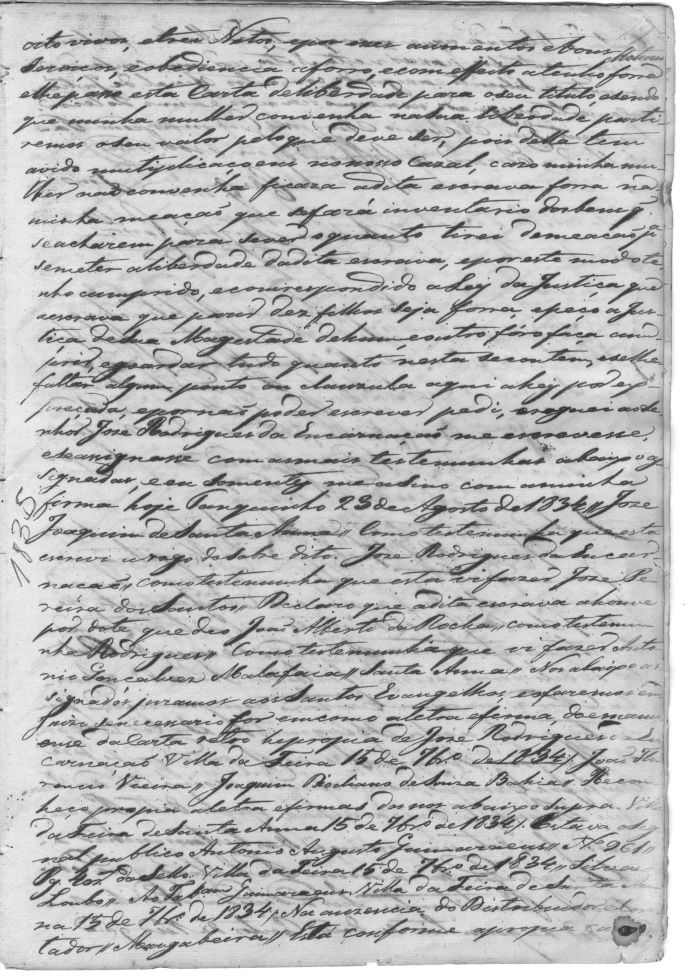 octo vivos, e tres Netos, e por nos aumentos e bons
Servisos, e obediencia a forro, e com effeito a tenho forra
e lhe passo esta Carta de liberdade para o seu titulo, e sendo
que minha mulher convenha na sua liberdade parti
remos o seu valor pelo que deve ser, pois della tem
avido multiplicaçoens no nosso Cazal, cazo minha mu
lher não convenha ficara a dita escrava forra na
minha meação que se fará inventario dos bens q.
se acharem para se ver o quanto tirei de meação p.ª
se meter a liberdade da dita escrava, e por este modo te
nho cumprido, e correspondido a Ley da Justiça que
a escrava que parir dez filhos seja forra, e peço a Jus
tiça de Sua Magestade de hum, e outro fôro faça cum
prir, e guardar tudo quanto nesta se contem, e se lhe
faltar algum ponto ou clauzula aqui a hey por ex
preçada, e por não poder escrever pedi, e roguei ao Se
nhor José Rodrigues da Encarnação me escrevesse,
e assignasse com as mais testemunhas abaixo as
signadas, e eu somente me asino com a minha
firma hoje Tanquinho 23 de Agosto de 1834 // José
Joaquim de Santa Anna // Como testemunha que esta
escrevi a rogo do sobre dito José Rodrigues da Encar
nação // como testemunha que esta vi fazer José Pe
reira dos Santos // Declaro que a dita escrava a houve
por dote que deo João Alberto da Rocha // como testemu
nha Rodrigues // Como testemunha que vi fazer Anto
nio Gonçalves Malafaia // Santa Anna // Nos abaixo as
signados juramos aos Santos Evangelhos, e o faremos em
Juizo se necessario for em como a letra e firma, do emanu
ense da Carta retro he propria de José Rodrigues da En
carnação Villa da Feira 15 de 7br.º de 1834 // João Flo
rencio Vieira // Joaquim de Souza Bahia // Recon
heço propria a letra e firmas dos nos abaixo supra. Villa
da Feira de Santa Anna 15 de 7br.º de 1834 // Estava o sig
nal publico Antonio Augusto Guimaraens // Nº 261 //
Pg. do Sello. Villa da Feira 15 de 7br.º de 1834 // Silva
Lobo // Ao Tab.am Guimaraens. Villa da Feira de Santa An
na 15 de 7br.º de 1834 // Na auzencia do Distribuidor e Con
tador // Mangabeira // Está conforme a propria
1835